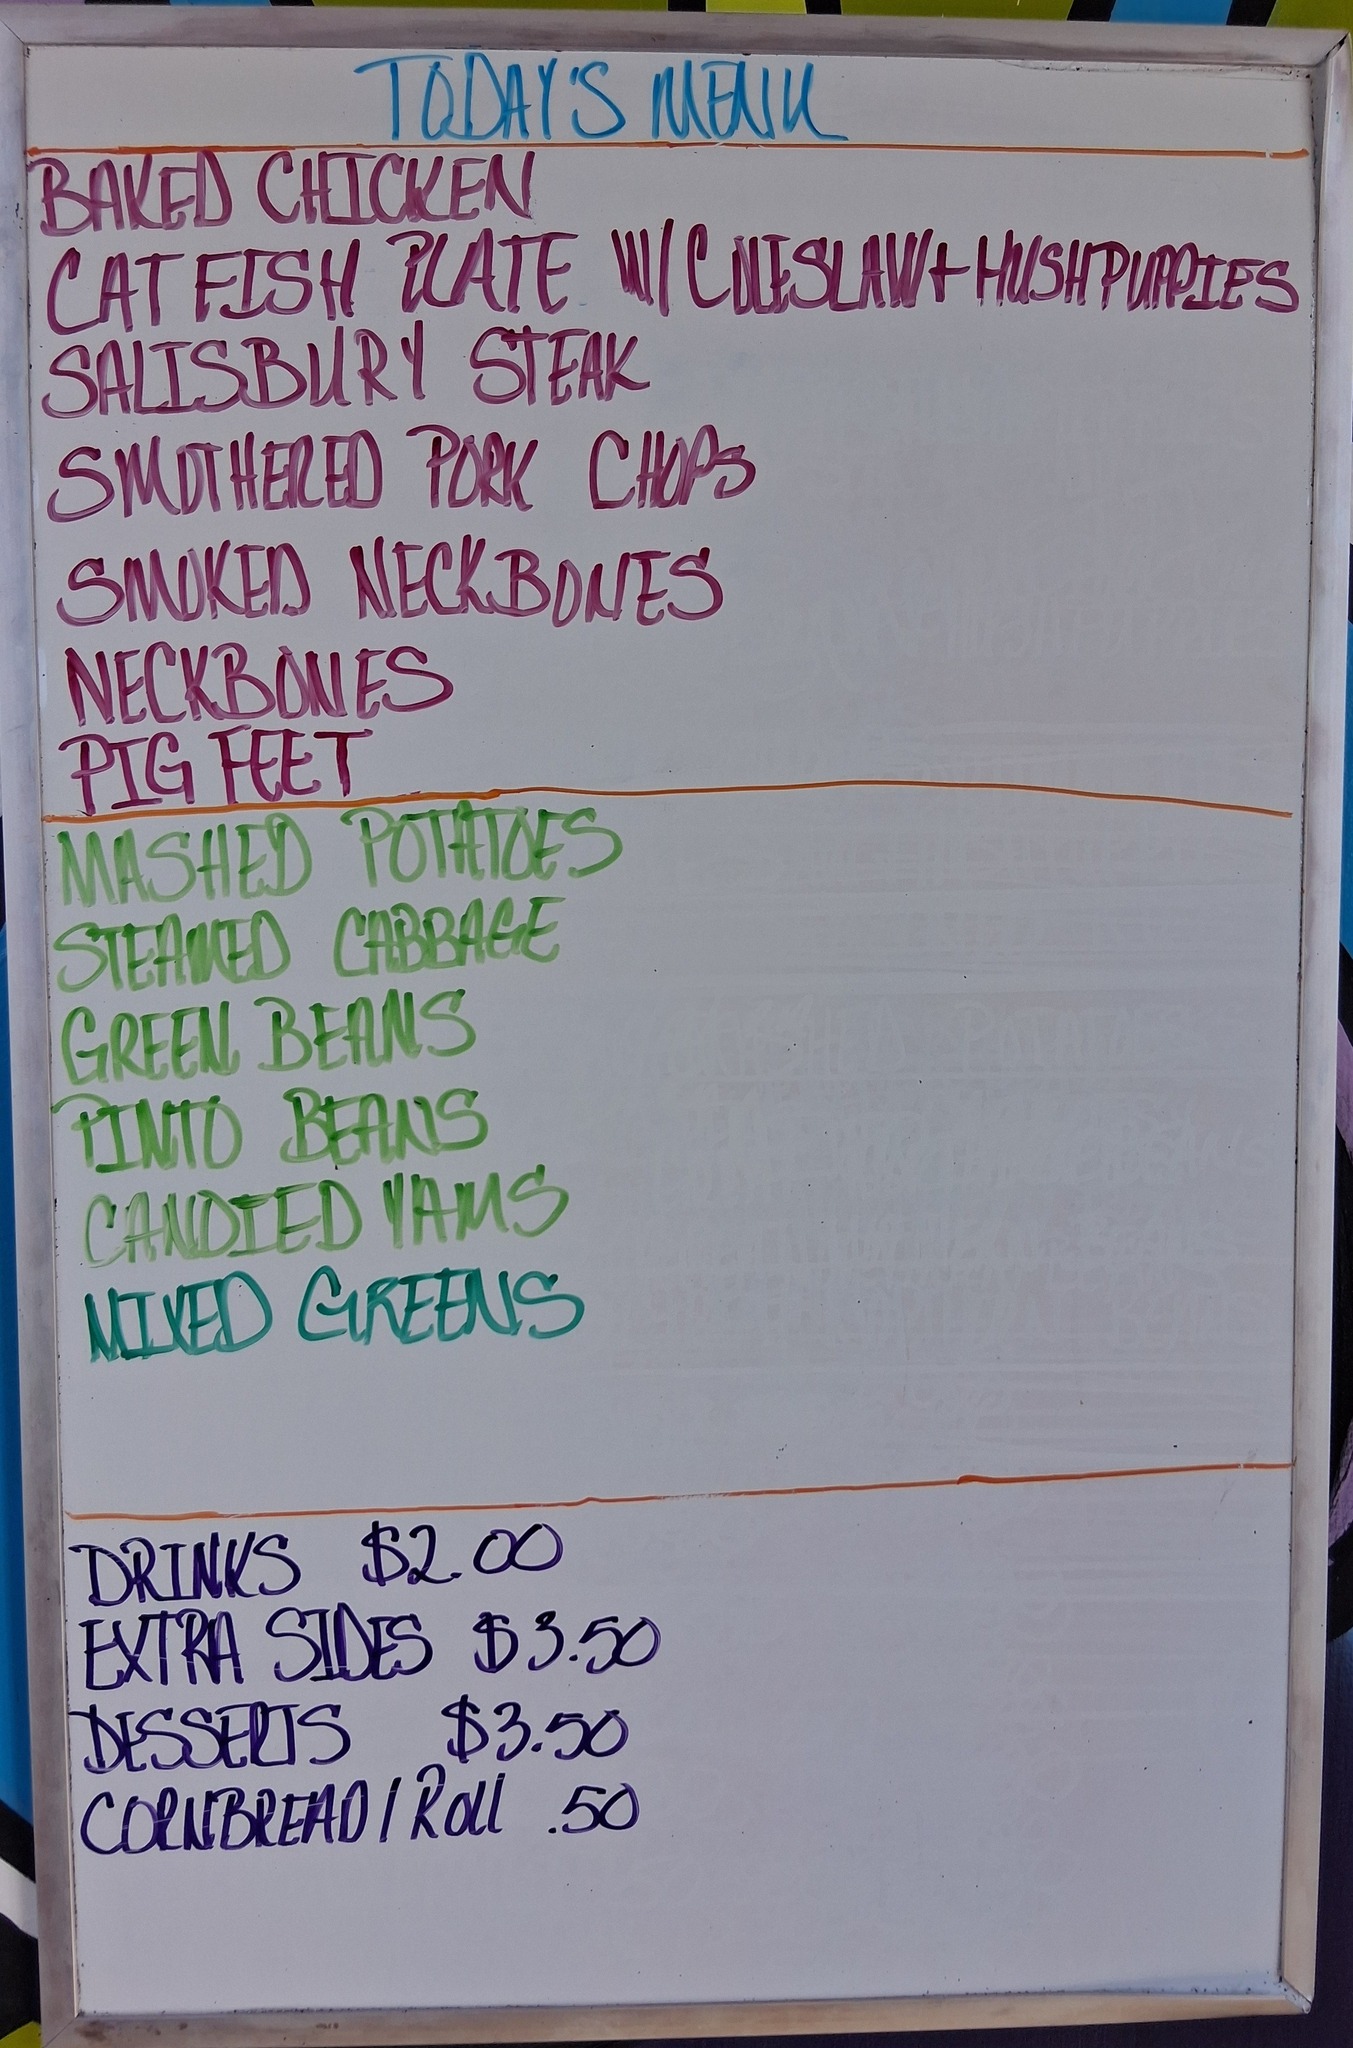 TODAY'S MENU
BAKED CHICKEN
CATFISH PLATE W/ COLESLAW + HUSHPUPPIES
SALISBURY STEAK
SMOTHERED PORK CHOPS
SMOKED NECKBONES
NECKBONES
PIG FEET
MASHED POTATOES
STEAMED CABBAGE
GREEN BEANS
PINTO BEANS
CANDIED YAMS
MIXED GREENS
DRINKS $2.00
EXTRA SIDES $3.50
DESSERTS $3.50
CORNBREAD/Roll .50